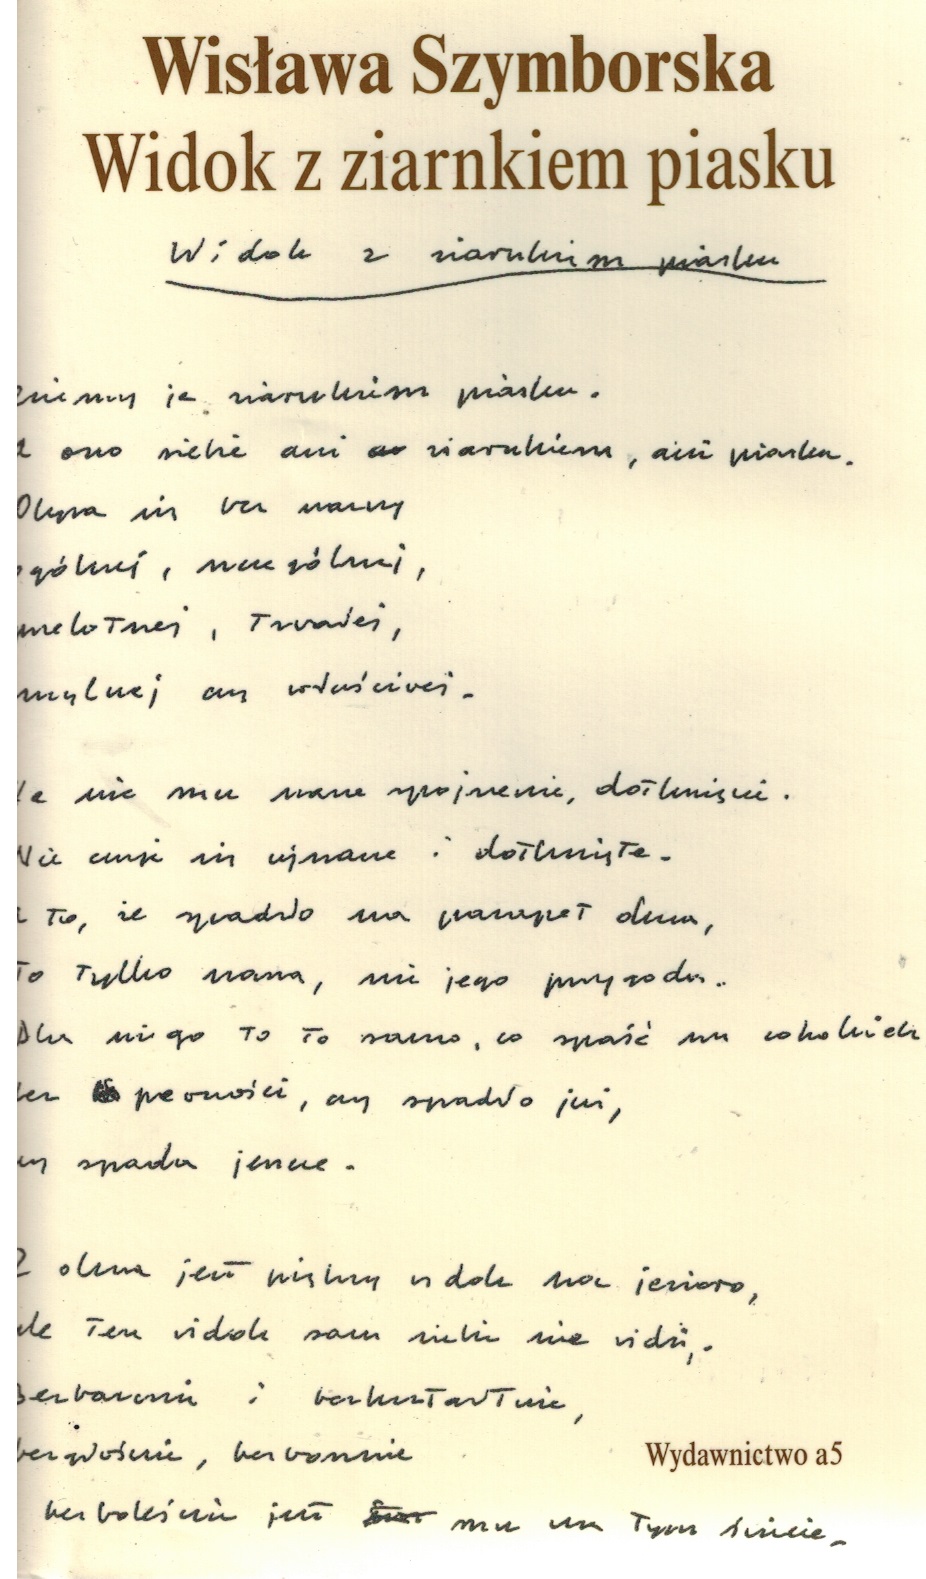 Wisława Szymborska
Widok z ziarnkiem piasku
Widok z ziarnkiem piasku
wiemy je ziarnkiem piasku.
A ono siebie ani ziarnkiem, ani piasku.
Obywa się bez nazwy
ogólnej, szczególnej,
zelotnej, trwałej,
mylnej czy właściwej.
a nic mu nasze spojrzenie, dotknięcie.
Nie czuje się ujrzane i dotknięte.
A to, że spadło na parapet okna,
to tylko nasza, nie jego przygoda.
Dla niego to to samo, co spaść na cokolwiek
bez pewności, czy spadło już,
czy spada jeszcze.
Z okna jest piękny widok na jezioro,
ale ten widok sam siebie nie widzi.
Bezbarwnie i bezkształtnie,
bezgłośnie, bezwonnie
Wydawnictwo a5
bezboleśnie jest mu na tym świecie.